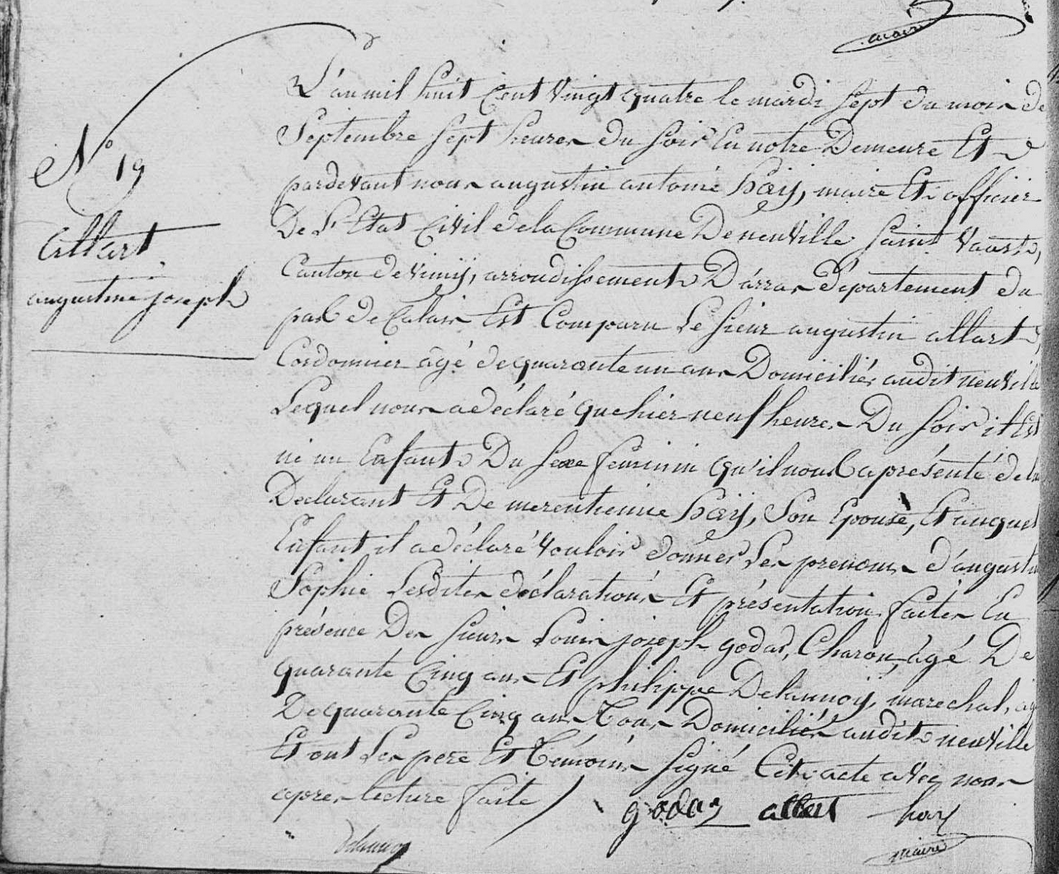 maire
L'an mil huit Cent Vingt quatre le mardi sept du mois de
Septembre sept heures du soir En notre Demeure Et
pardevant nous augustin antoine häÿ, maire Et officier
De L'Etat Civil de la Commune De neuville Saint Vaast,
Canton de vimÿ, arrondissement D'arras département du
pas de Calais Est Comparu Le sieur augustin allart,
Cordonnier agé de quarante un ans Domicilié audit neuville
Lequel nous a déclaré que hier neuf heures Du soir il Est
né un Enfant Du sexe féminin qu'il nous a présenté de lui
Declarant Et De merentienne häÿ, Son Epouse, Et auquel
Enfant il a déclaré Vouloir donner Les prenoms d'augustine
Sophie Lesdites déclarations Et présentation faites En
présence Des sieurs Louis joseph godas, Charon, agé De
quarante Cinq ans Et philippe Delannoy, marechal, agé
De quarante Cinq ans Tous Domiciliés audit neuville
Et ont Les pere Et Témoins signé Cet acte avec nous
apres lecture faite
N° 19
allart
augustine joseph
godas allart haÿ
delannoy maire